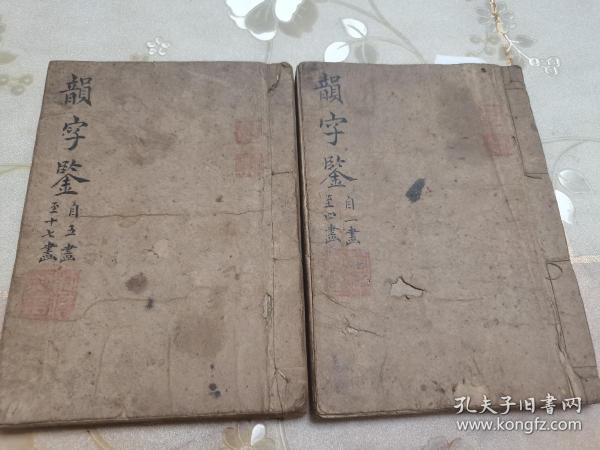 韻字鑒
自一畫
至四畫
韻字鑒
自五畫
至十七畫
孔夫子旧书网
www.kongfz.com